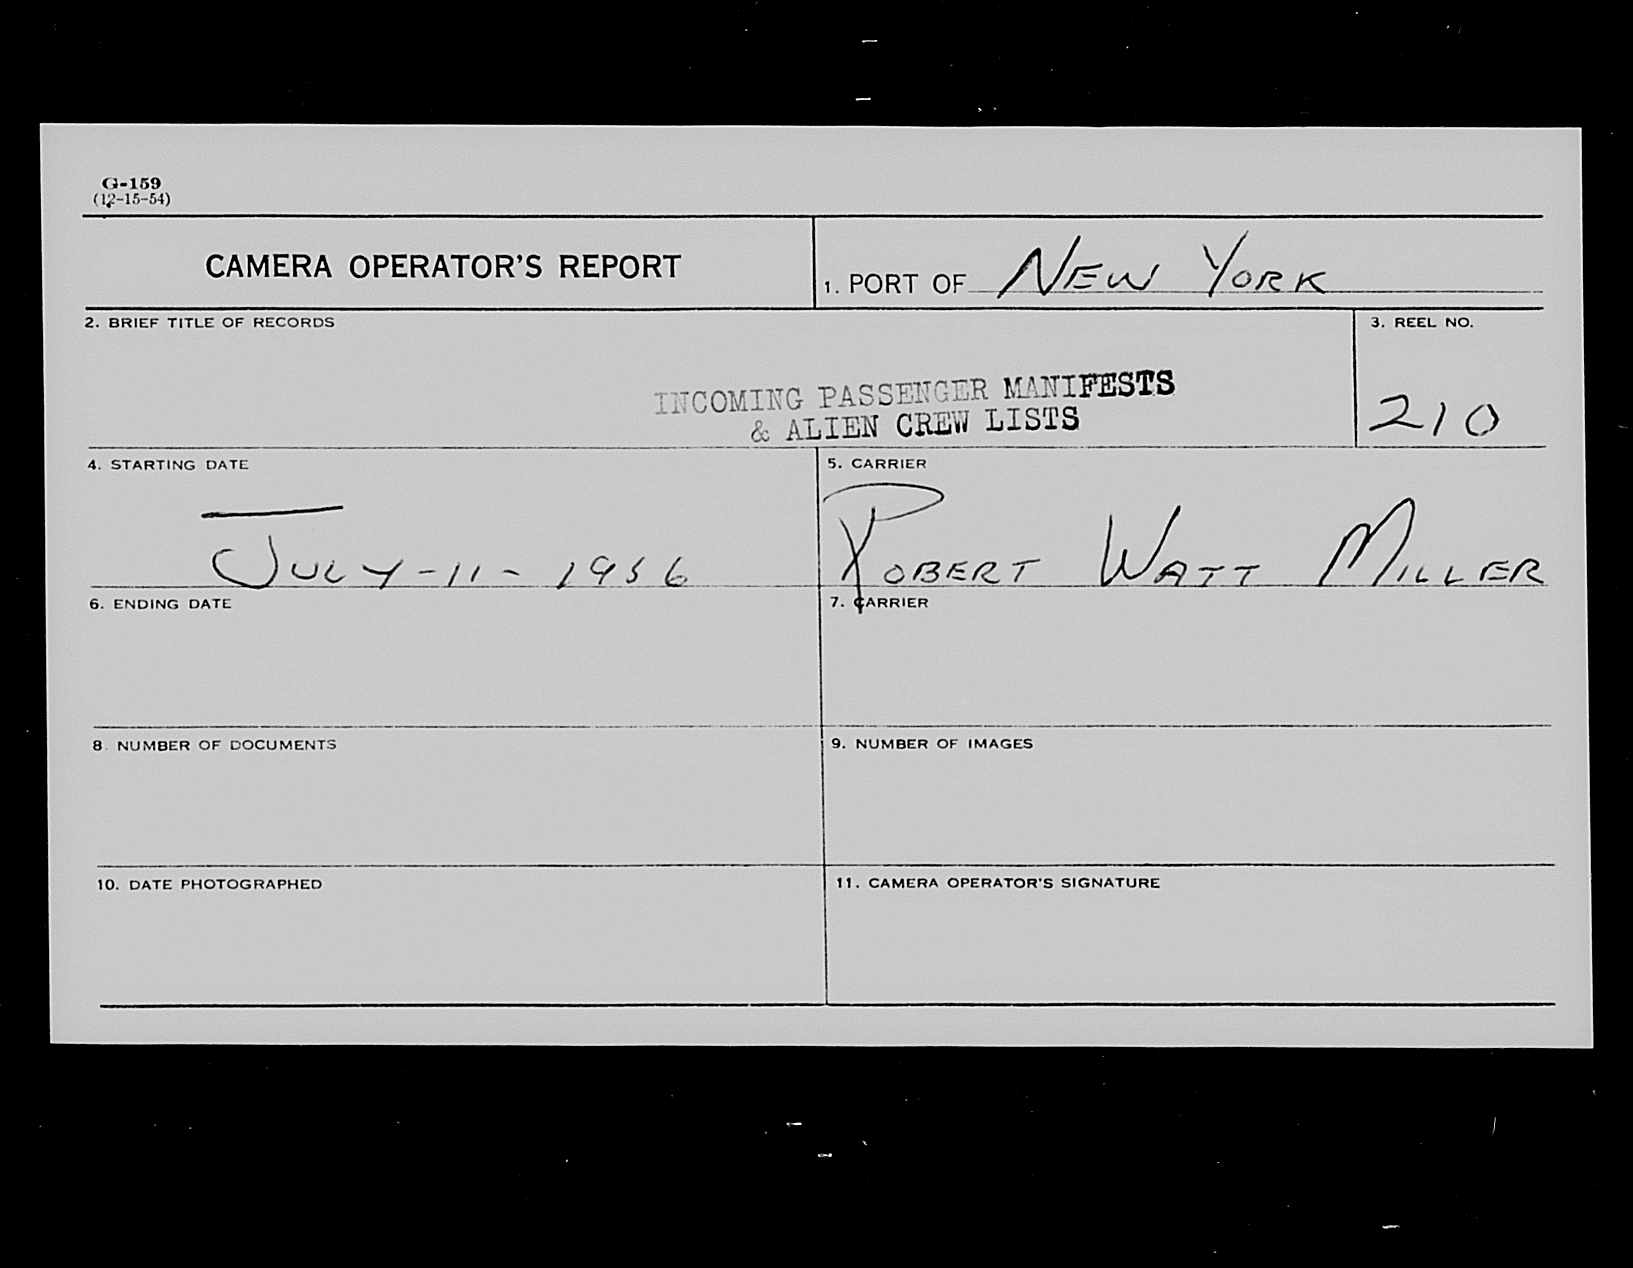 G-159
(12-15-54)
CAMERA OPERATOR'S REPORT
1. PORT OF NEW YORK
2. BRIEF TITLE OF RECORDS
INCOMING PASSENGER MANIFESTS
& ALIEN CREW LISTS
3. REEL NO.
210
4. STARTING DATE
JULY-11-1956
5. CARRIER
ROBERT WATT MILLER
6. ENDING DATE
7. CARRIER
8. NUMBER OF DOCUMENTS
9. NUMBER OF IMAGES
10. DATE PHOTOGRAPHED
11. CAMERA OPERATOR'S SIGNATURE